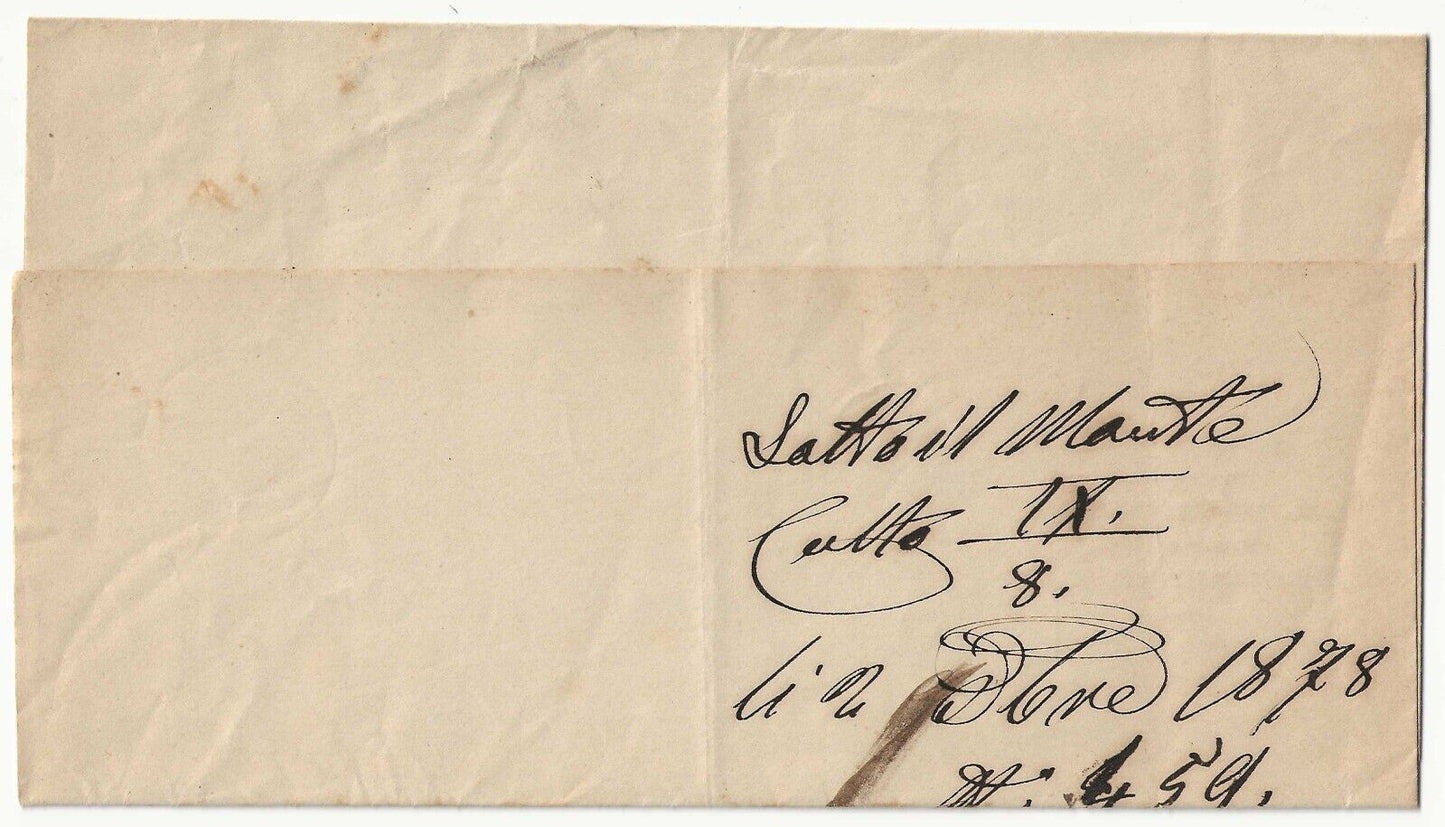 Sotto il Monte
Culto IX.
8.
li 2 Xbre 1878
N: 459.